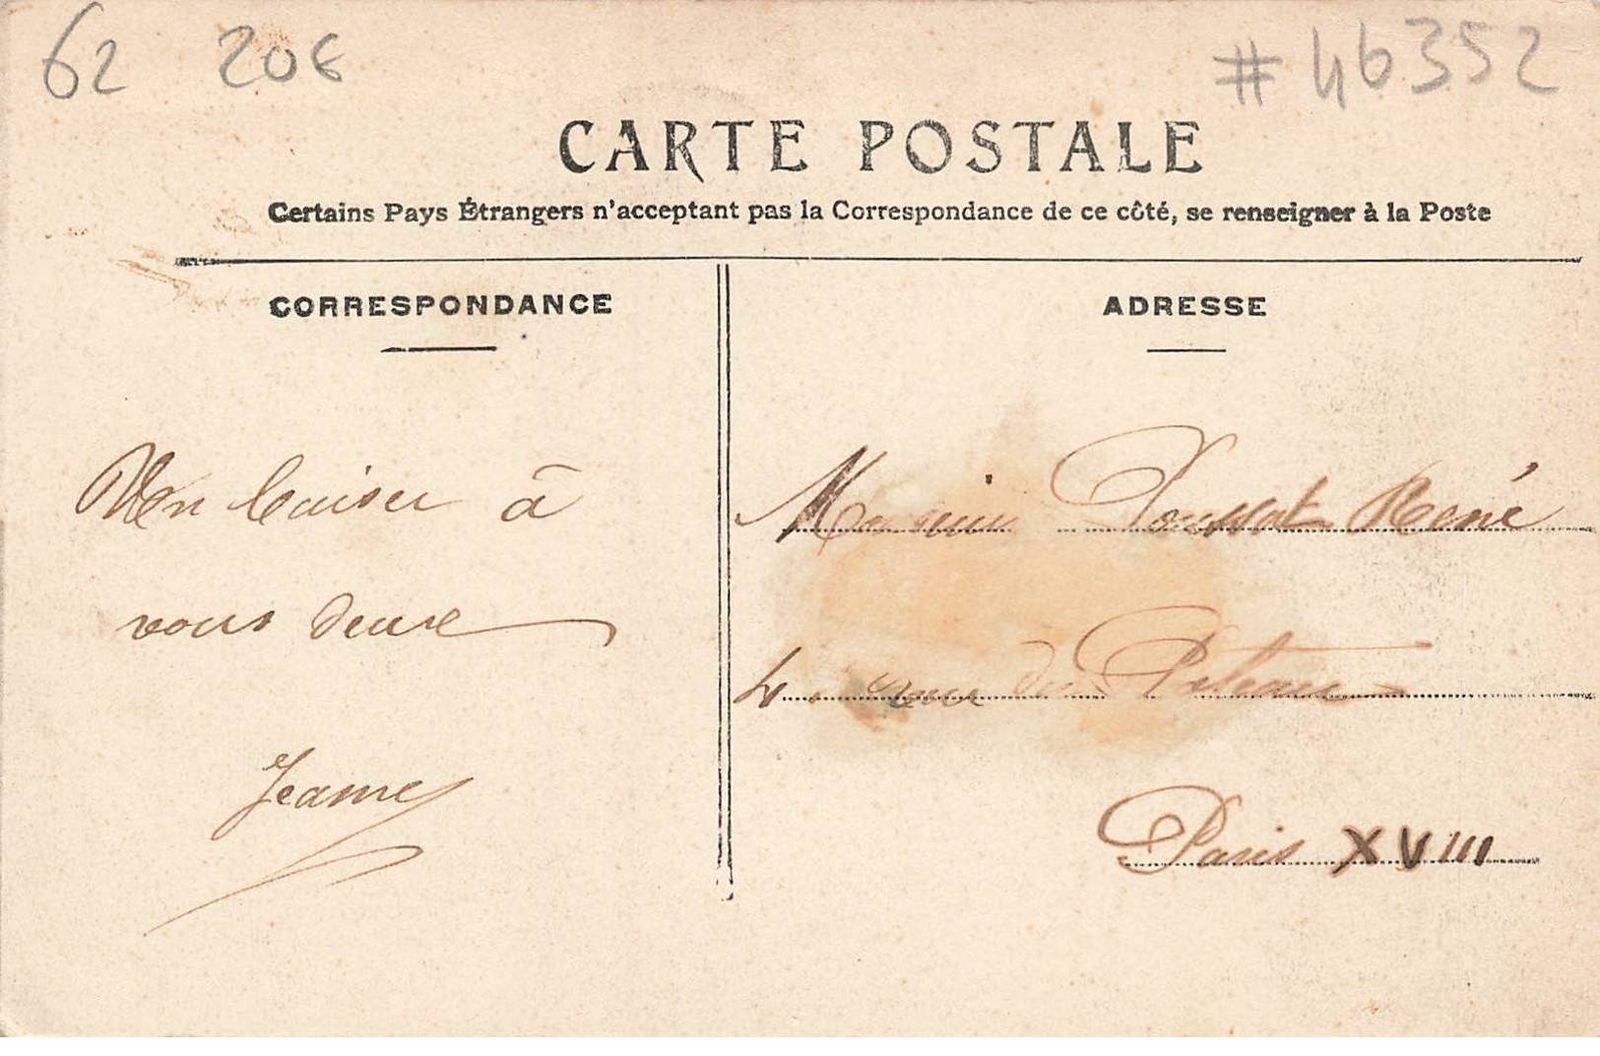 62 20€ #46352
CARTE POSTALE
Certains Pays Étrangers n'acceptant pas la Correspondance de ce côté, se renseigner à la Poste
CORRESPONDANCE
Un baiser à
vous deux
Jeanne
ADRESSE
Monsieur Poussat René
4. rue du Poteau
Paris XVIII